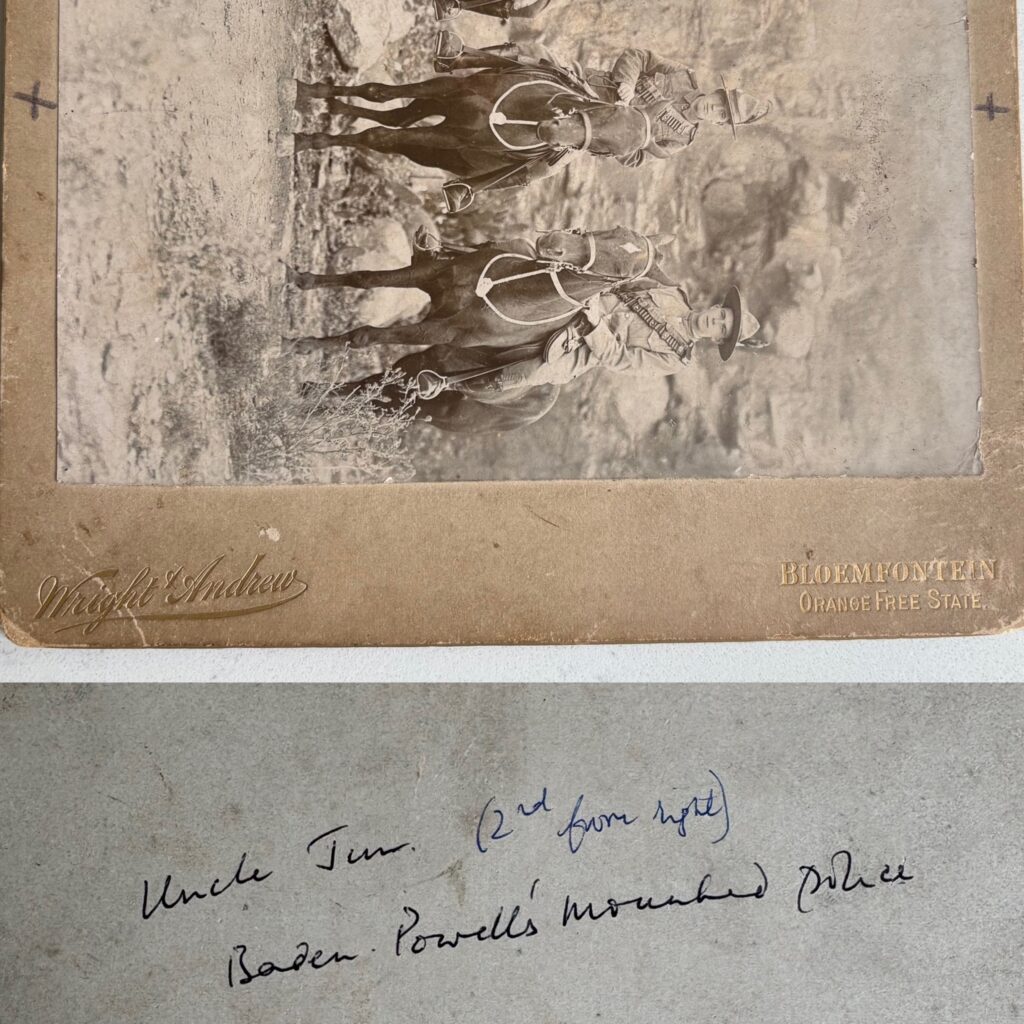 Wright & Andrew
BLOEMFONTEIN
ORANGE FREE STATE.
Uncle Jim. (2nd from right)
Baden. Powell's mounted police